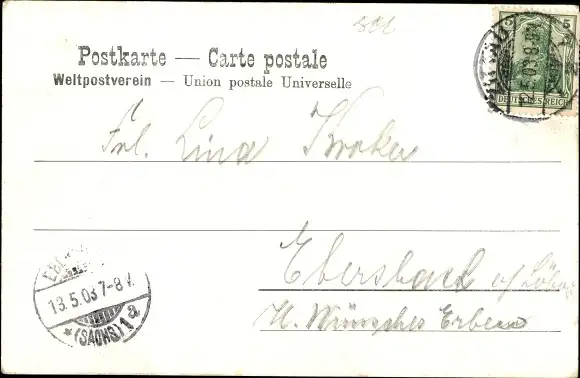 Postkarte — Carte postale
Weltpostverein — Union postale Universelle
5
12.5.03.8
DEUTSCHES REICH
Frl. Lina
Ebersbach
13.5.03 7-8
*(SACHS)1a
H. Wünsches Erben